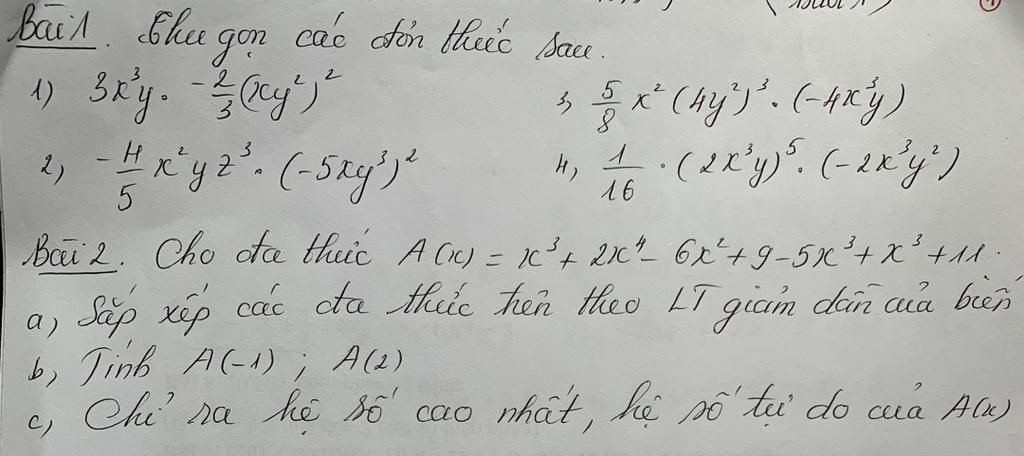 (Buổi 1)
Bài 1. Thu gọn các đơn thức sau.
1) 3x³y . -2/3(xy²)² 3, 5/8 x² (4y²)³ . (-4x³y)
2, -4/5 x²yz³ . (-5xy³)² 4, 1/16 . (2x³y)⁵ . (-2x³y²)
Bài 2. Cho đa thức A(x) = x³ + 2x⁴ - 6x² + 9 - 5x³ + x³ + 11.
a, Sắp xếp các đa thức trên theo LT giảm dần của biến
b, Tính A(-1) ; A(2)
c, Chỉ ra hệ số cao nhất, hệ số tự do của A(x)